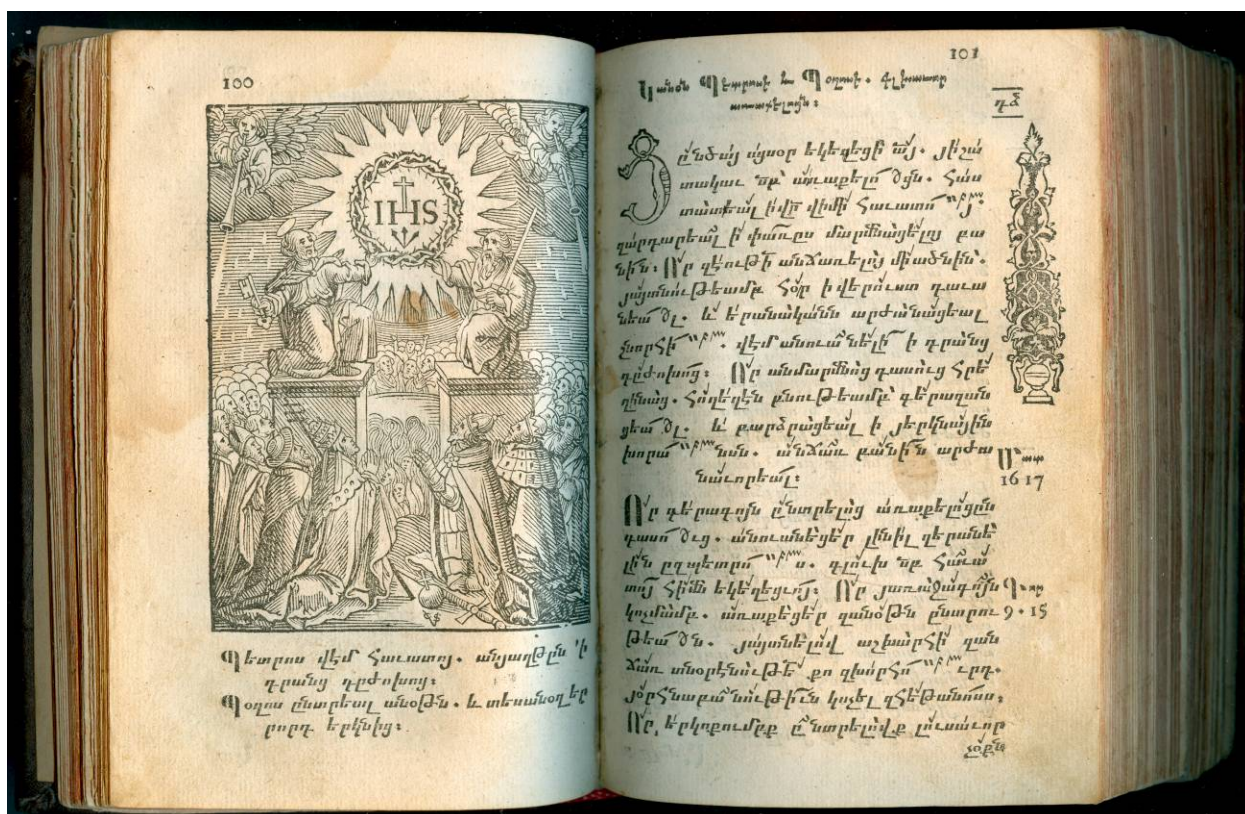 100
IHS
Պետրոս վէմ հաւատոյ. անյաղթըն 'ի
դրանց դըժոխոց:
Պօղոս ընտրեալ անօթն. և տեսանօղ եր
րորդ երկնից:
101
Կանօն Պետրոսի և Պօղոսի. գլխաւոր
առաքելոցն:
դձ
Ցընծայ այսօր եկեղեցի այ. յիշա
տակաւ սբ առաքելո
հաւատո
զարդարեալ ի փառըս մարմնացելոյ բա
նին: Որ զէութի անճառելոյ միածնին.
յայտնութեամբ հօր ի վերուստ դաւա
և երանականն արժանացեալ
շնորհի վէմ անուանելի ի դրանց
դըժոխոց: Որ անմարմնոց դասուց հրե
ղինաց. հողեղէն բնութեամբ գերազան
և բարձրացեալ ի յերկնային
խորա անճառ բանին արժա
նաւորեալ:
16 17
Որ գերագոյն ընտրելոց առաքելոցըն
դասո անուանեցեր լինիլ զերանե
լին ըզպետրո գլուխ սբ հաւա
տոյ հիմն եկեղեցւոյ: Որ յառաջագոյն
կոչմամբ. առաքեցեր զանօթն ընտրու
9 . 15
յայտնելով աշխարհի զան
ճառ տնօրէնութե քո զխորհո
կոչել զհեթանոսս:
Որ երկոքումբք ընտրելովք լուսաւոր